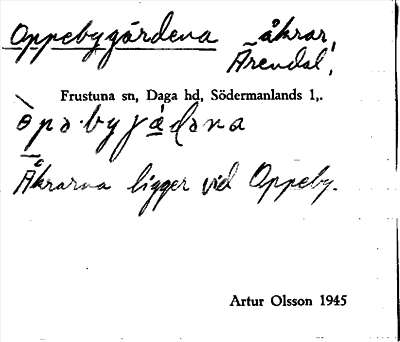 Oppebygärdena åkrar,
Ärendal,
Frustuna sn, Daga hd, Södermanlands l,.
Åkrarna ligger vid Oppeby.
Artur Olsson 1945